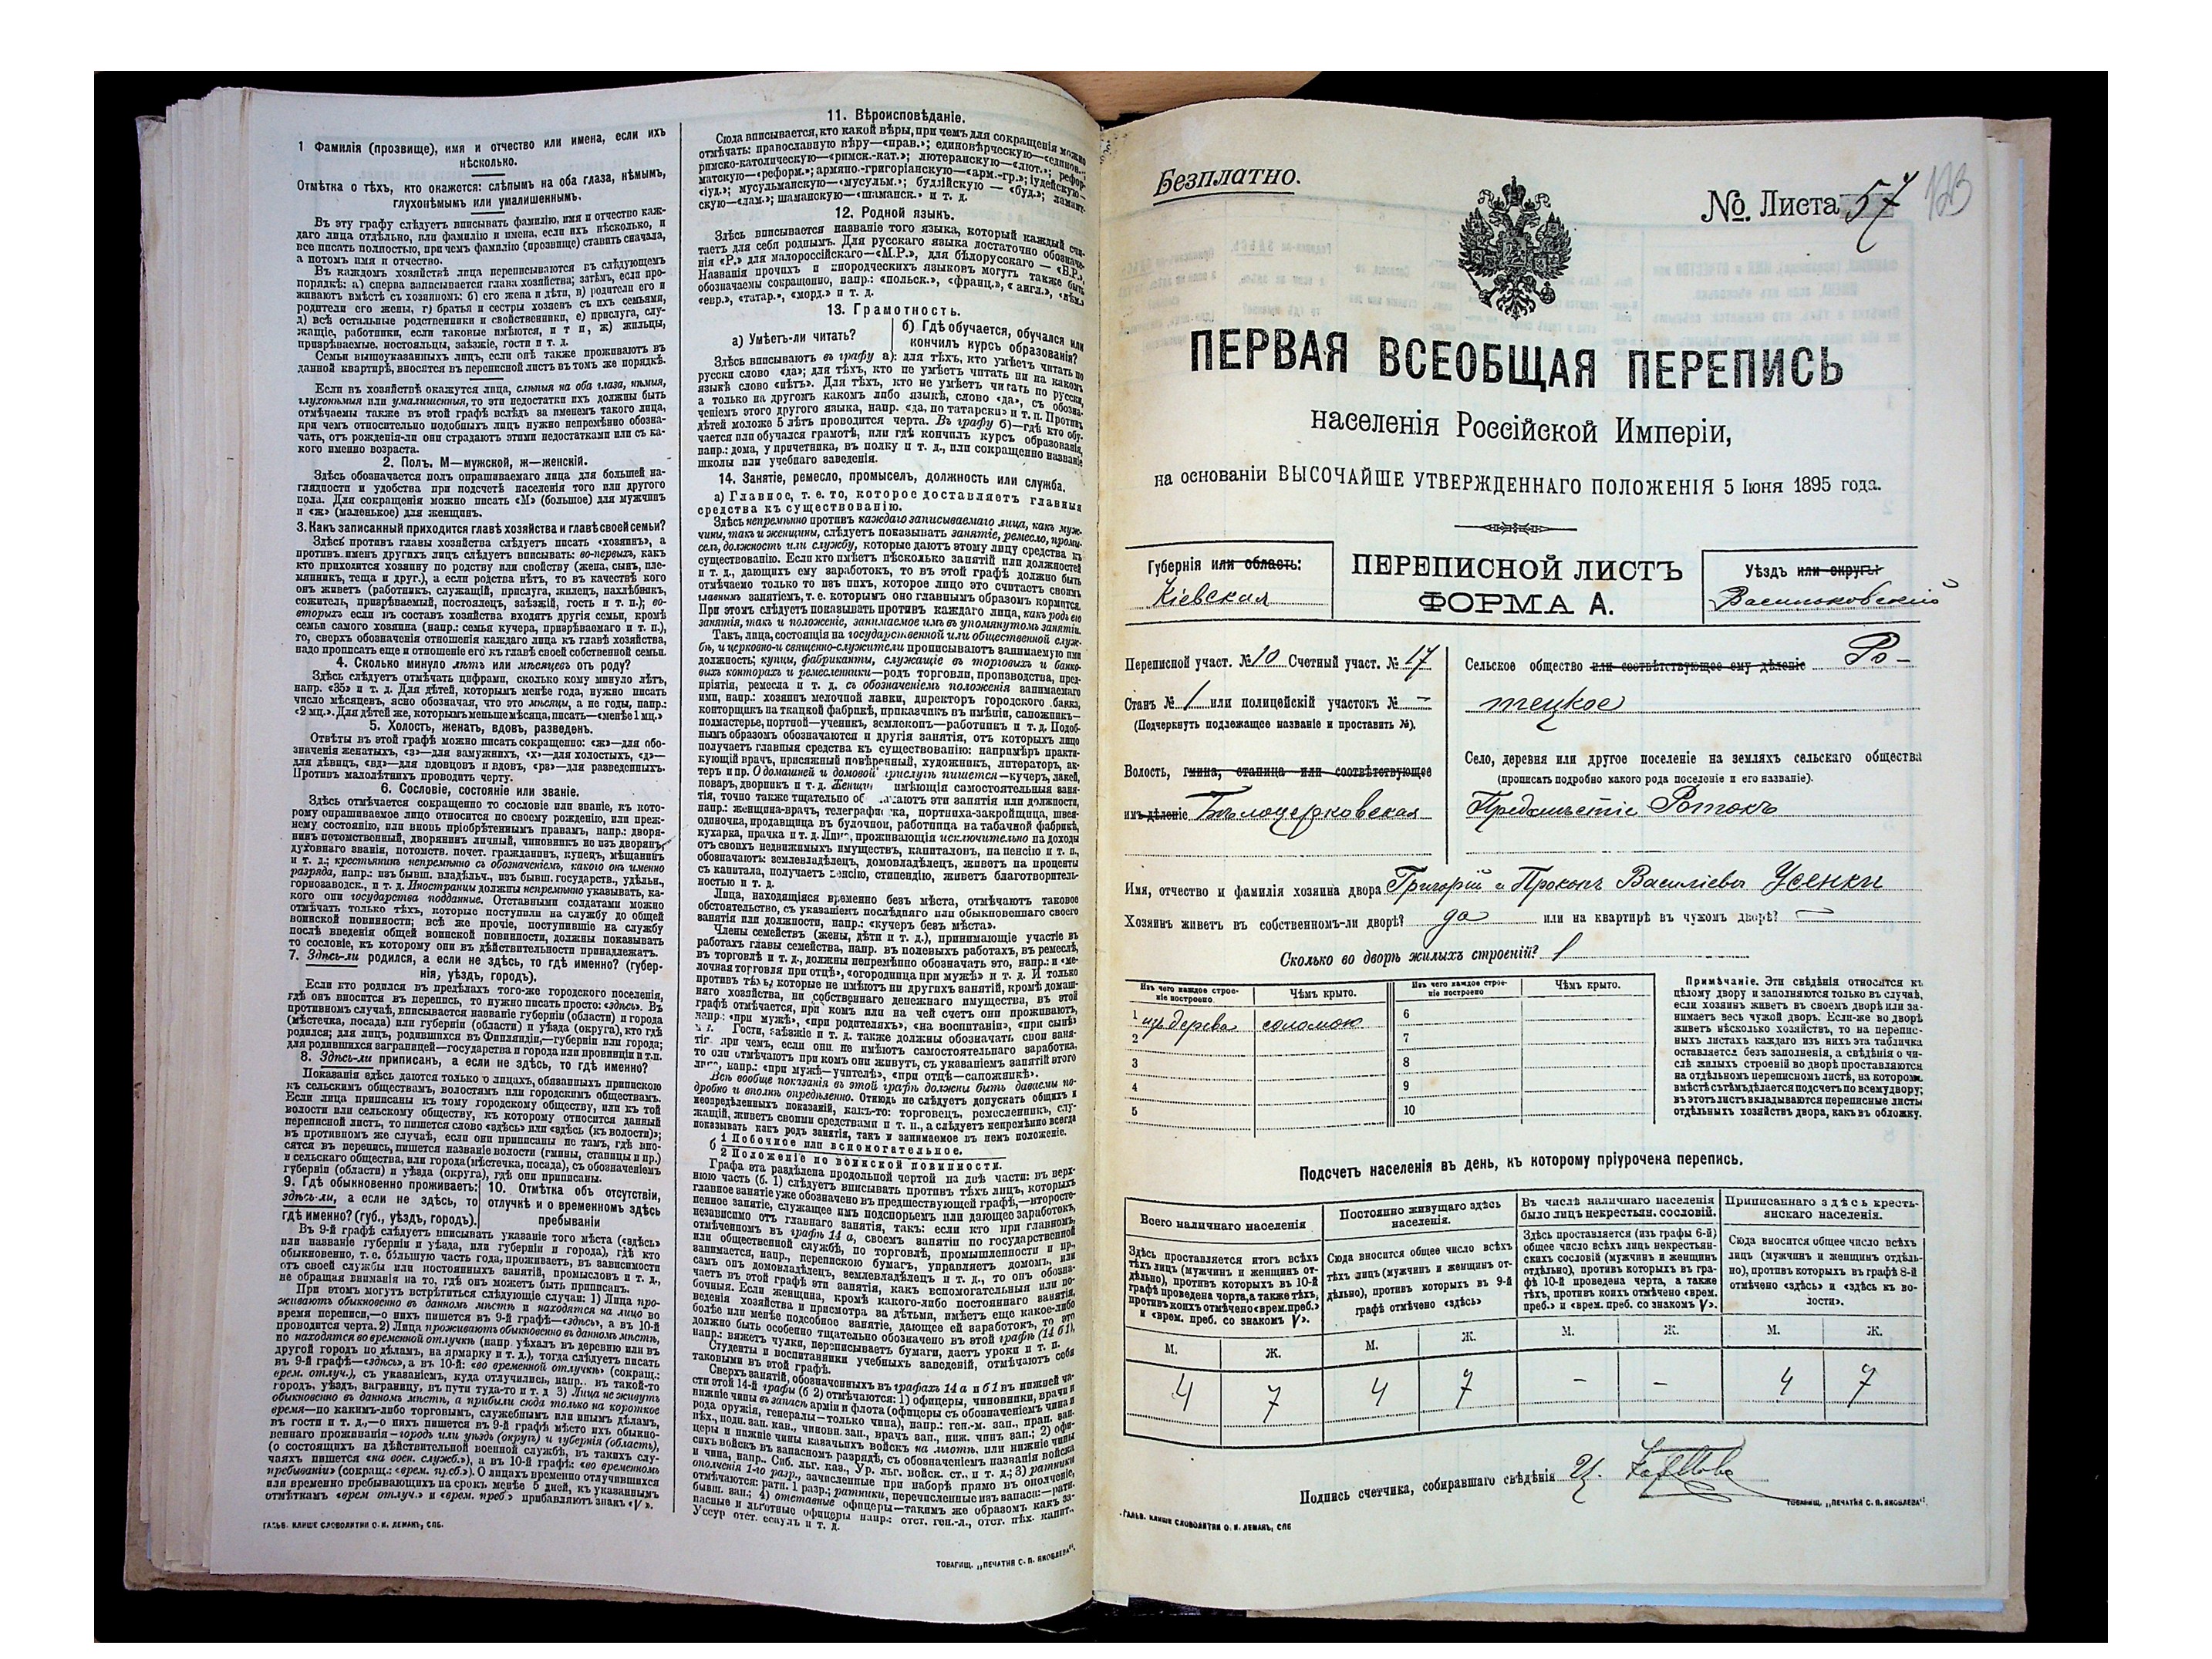 1 Фамилія (прозвище), имя и отчество или имена, если ихъ
нѣсколько.
Отмѣтка о тѣхъ, кто окажется: слѣпымъ на оба глаза, нѣмымъ,
глухонѣмымъ или умалишеннымъ.
Въ эту графу слѣдуетъ вписывать фамилію, имя и отчество каж-
даго лица отдѣльно, или фамилію и имена, если ихъ нѣсколько, и
все писать полностью, при чемъ фамилію (прозвище) ставить сначала,
а потомъ имя и отчество.
Въ каждомъ хозяйствѣ лица переписываются въ слѣдующемъ
порядкѣ: а) сперва записывается глава хозяйства; затѣмъ, если про-
живаютъ вмѣстѣ съ хозяиномъ: б) его жена и дѣти, в) родители его и
родители его жены, г) братья и сестры хозяевъ съ ихъ семьями,
д) всѣ остальные родственники и свойственники, е) прислуга, слу-
жащіе, работники, если таковые имѣются, и т п, ж) жильцы,
призрѣваемые, постояльцы, заѣзжіе, гости и т. д.
Семьи вышеуказанныхъ лицъ, если онѣ также проживаютъ въ
данной квартирѣ, вносятся въ переписной листъ въ томъ же порядкѣ.
Если въ хозяйствѣ окажутся лица, слѣпыя на оба глаза, нѣмыя,
глухонѣмыя или умалишенныя, то эти недостатки ихъ должны быть
отмѣчаемы также въ этой графѣ вслѣдъ за именемъ такого лица,
при чемъ относительно подобныхъ лицъ нужно непремѣнно обозна-
чать, отъ рожденія-ли они страдаютъ этими недостатками или съ ка-
кого именно возраста.
2. Полъ. М—мужской, ж—женскій.
Здѣсь обозначается полъ опрашиваемаго лица для большей на-
глядности и удобства при подсчетѣ населенія того или другого
пола. Для сокращенія можно писать «М» (большое) для мужчинъ
и «ж» (маленькое) для женщинъ.
3. Какъ записанный приходится главѣ хозяйства и главѣ своей семьи?
Здѣсь противъ главы хозяйства слѣдуетъ писать «хозяинъ», а
противъ именъ другихъ лицъ слѣдуетъ вписывать: во-первыхъ, какъ
кто приходится хозяину по родству или свойству (жена, сынъ, пле-
мянникъ, теща и друг.), а если родства нѣтъ, то въ качествѣ кого
онъ живетъ (работникъ, служащій, прислуга, жилецъ, нахлѣбникъ,
сожитель, призрѣваемый, постоялецъ, заѣзжій, гость и т. п.); во-
вторыхъ если въ составъ хозяйства входятъ другія семьи, кромѣ
семьи самого хозяина (напр.: семья кучера, призрѣваемаго и т. п.),
то, сверхъ обозначенія отношенія каждаго лица къ главѣ хозяйства,
надо прописать еще и отношеніе его къ главѣ своей собственной семьи.
4. Сколько минуло лѣтъ или мѣсяцевъ отъ роду?
Здѣсь слѣдуетъ отмѣчать цифрами, сколько кому минуло лѣтъ,
напр. «35» и т. д. Для дѣтей, которымъ менѣе года, нужно писать
число мѣсяцевъ, ясно обозначая, что это мѣсяцы, а не годы, напр.:
«2 мц.». Для дѣтей же, которымъ меньше мѣсяца, писать—«менѣе 1 мц.»
5. Холостъ, женатъ, вдовъ, разведенъ.
Отвѣты въ этой графѣ можно писать сокращенно: «ж»—для обо-
значенія женатыхъ, «з»—для замужнихъ, «х»—для холостыхъ, «д»—
для дѣвицъ, «вд»—для вдовцовъ и вдовъ, «рз»—для разведенныхъ.
Противъ малолѣтнихъ проводить черту.
6. Сословіе, состояніе или званіе.
Здѣсь отмѣчается сокращенно то сословіе или званіе, къ кото-
рому опрашиваемое лицо относится по своему рожденію, или преж-
нему состоянію, или вновь пріобрѣтеннымъ правамъ, напр.: дворя-
нинъ потомственный, дворянинъ личный, чиновникъ не изъ дворянъ,
духовнаго званія, потомств. почет. гражданинъ, купецъ, мѣщанинъ
и т. д.; крестьянинъ непремѣнно съ обозначеніемъ, какого онъ именно
разряда, напр.: изъ бывш. владѣльч., изъ бывш. государств., удѣльн.,
горнозаводск., и т. д. Иностранцы должны непремѣнно указывать, ка-
кого они государства подданные. Отставными солдатами можно
отмѣчать только тѣхъ, которые поступили на службу до общей
воинской повинности; всѣ же прочіе, поступившіе на службу
послѣ введенія общей воинской повинности, должны показывать
то сословіе, къ которому они въ дѣйствительности принадлежатъ.
7. Здѣсь-ли родился, а если не здѣсь, то гдѣ именно? (губер-
нія, уѣздъ, городъ).
Если кто родился въ предѣлахъ того-же городского поселенія,
гдѣ онъ вносится въ перепись, то нужно писать просто: «здѣсь». Въ
противномъ случаѣ, вписывается названіе губерніи (области) и города
(мѣстечка, посада) или губерніи (области) и уѣзда (округа), кто гдѣ
родился; для лицъ, родившихся въ Финляндіи,—губерніи или города;
для родившихся заграницей—государства и города или провинціи и т.п.
8. Здѣсь-ли приписанъ, а если не здѣсь, то гдѣ именно?
Показанія здѣсь даются только о лицахъ, обязанныхъ припискою
къ сельскимъ обществамъ, волостямъ или городскимъ обществамъ.
Если лица приписаны къ тому городскому обществу, или къ той
волости или сельскому обществу, къ которому относится данный
переписной листъ, то пишется слово «здѣсь» или «здѣсь (къ волости)»;
въ противномъ же случаѣ, если они приписаны не тамъ, гдѣ вно-
сятся въ перепись, пишется названіе волости (гмины, станицы и пр.)
и сельскаго общества, или города (мѣстечка, посада), съ обозначеніемъ
губерніи (области) и уѣзда (округа), гдѣ они приписаны.
9. Гдѣ обыкновенно проживаетъ:
здѣсь-ли, а если не здѣсь, то
гдѣ именно? (губ., уѣздъ, городъ).
10. Отмѣтка объ отсутствіи,
отлучкѣ и о временномъ здѣсь
пребываніи
Въ 9-й графѣ слѣдуетъ вписывать указаніе того мѣста («здѣсь»
или названіе губерніи и уѣзда, или губерніи и города), гдѣ кто
обыкновенно, т. е. бо́льшую часть года, проживаетъ, въ зависимости
отъ своей службы или постоянныхъ занятій, промысловъ и т. д.,
не обращая вниманія на то, гдѣ онъ можетъ быть приписанъ.
При этомъ могутъ встрѣтиться слѣдующіе случаи: 1) Лица про-
живаютъ обыкновенно въ данномъ мѣстѣ и находятся на лицо во
время переписи,—о нихъ пишется въ 9-й графѣ—«здѣсь», а въ 10-й
проводится черта. 2) Лица проживаютъ обыкновенно въ данномъ мѣстѣ,
но находятся во временной отлучкѣ (напр. уѣхалъ въ деревню или въ
другой городъ по дѣламъ, на ярмарку и т. д.), тогда слѣдуетъ писать
въ 9-й графѣ—«здѣсь», а въ 10-й: «во временной отлучкѣ» (сокращ.:
врем. отлуч.), съ указаніемъ, куда отлучились, напр.. въ такой-то
городъ, уѣздъ, заграницу, въ пути туда-то и т. д 3) Лица не живутъ
обыкновенно въ данномъ мѣстѣ, а прибыли сюда только на короткое
время—по какимъ-либо торговымъ, служебнымъ или инымъ дѣламъ,
въ гости и т. д.,—о нихъ пишется въ 9-й графѣ мѣсто ихъ обыкно-
веннаго проживанія—городъ или уѣздъ (округъ) и губернія (область),
(о состоящихъ на дѣйствительной военной службѣ, въ такихъ слу-
чаяхъ пишется «на воен. служб.»), а въ 10-й графѣ: «во временномъ
пребываніи» (сокращ.: «врем. пр.сб.»). О лицахъ временно отлучившихся
или временно пребывающихъ на срокъ менѣе 5 дней, къ указаннымъ
отмѣткамъ «врем отлуч.» и «врем. преб.» прибавляютъ знакъ «V».
ГАЛЬВ. КЛИШЕ СЛОВОЛИТНИ О. И. ЛЕМАНЪ, СПБ.
11. Вѣроисповѣданіе.
Сюда вписывается, кто какой вѣры, при чемъ для сокращенія можно
отмѣчать: православную вѣру—«прав.»; единовѣрческую—«единов.»;
римско-католическую—«римск.-кат.»; лютеранскую—«лют.»; рефор-
матскую—«реформ.»; армяно.-григоріанскую—«арм.-гр.»; іудейскую—
«іуд.»; мусульманскую—«мусульм.»; буддійскую — «буд.»; ламаит-
скую—«лам.»; шаманскую—«шаманск.» и т. д.
12. Родной языкъ.
Здѣсь вписывается названіе того языка, который каждый счи-
таетъ для себя роднымъ. Для русскаго языка достаточно обозначе-
нія «Р.» для малороссійскаго—«М.Р.», для бѣлорусскаго — «Б.Р.»,
Названія прочихъ и инородческихъ языковъ могутъ также быть
обозначаемы сокращенно, напр.: «польск.», «франц.», « англ.», «нѣм.»
«евр.», «татар.», «морд.» и т. д.
13. Грамотность.
а) Умѣетъ-ли читать?
б) Гдѣ обучается, обучался или
кончилъ курсъ образованія?
Здѣсь вписываютъ въ графу а): для тѣхъ, кто умѣетъ читать по
русски слово «да»; для тѣхъ, кто не умѣетъ читать ни на какомъ
языкѣ слово «нѣтъ». Для тѣхъ, кто не умѣетъ читать по русски,
а только на другомъ какомъ либо языкѣ, слово «да», съ обозна-
ченіемъ этого другого языка, напр. «да, по татарски» и т. п. Противъ
дѣтей моложе 5 лѣтъ проводится черта. Въ графу б)—гдѣ кто обу-
чается или обучался грамотѣ, или гдѣ кончилъ курсъ образованія,
напр.: дома, у причетника, въ полку и т. д., или сокращенно названіе
школы или учебнаго заведенія.
14. Занятіе, ремесло, промыселъ, должность или служба.
а) Главное, т. е. то, которое доставляетъ главныя
средства къ существованію.
Здѣсь непремѣнно противъ каждаго записываемаго лица, какъ муж-
чины, такъ и женщины, слѣдуетъ показывать занятіе, ремесло, промы-
селъ, должность или службу, которые даютъ этому лицу средства къ
существованію. Если кто имѣетъ нѣсколько занятій или должностей
и т. д., дающихъ ему заработокъ, то въ этой графѣ должно быть
отмѣчаемо только то изъ нихъ, которое лицо это считаетъ своимъ
главнымъ занятіемъ, т. е. которымъ оно главнымъ образомъ кормится.
При этомъ слѣдуетъ показывать противъ каждаго лица, какъ родъ его
занятія, такъ и положеніе, занимаемое имъ въ упомянутомъ занятіи.
Такъ, лица, состоящія на государственной или общественной служ-
бѣ, и церковно-и священно-служители прописываютъ занимаемую ими
должность; купцы, фабриканты, служащіе въ торговыхъ и банко-
выхъ конторахъ и ремесленники—родъ торговли, производства, пред-
пріятія, ремесла и т. д. съ обозначеніемъ положенія занимаемаго
ими, напр.: хозяинъ мелочной лавки, директоръ городского банка,
конторщикъ на ткацкой фабрикѣ, приказчикъ въ имѣніи, сапожникъ—
подмастерье, портной—ученикъ, землекопъ—работникъ и т. д. Подоб-
нымъ образомъ обозначаются и другія занятія, отъ которыхъ лицо
получаетъ главныя средства къ существованію: напримѣръ практи-
кующій врачъ, присяжный повѣренный, художникъ, литераторъ, ак-
теръ и пр. О домашней и домовой прислугѣ пишется—кучеръ, лакей,
поваръ, дворникъ и т. д. имѣющія самостоятельныя заня-
тія, точно также тщательно эти занятія или должности,
напр.: женщина-врачъ, портниха-закройщица, швея-
одиночка, продавщица въ булочной, работница на табачной фабрикѣ,
кухарка, прачка и т. д. Лица, проживающія исключительно на доходы
отъ своихъ недвижимыхъ имуществъ, капиталовъ, на пенсію и т. п.,
обозначаютъ: землевладѣлецъ, домовладѣлецъ, живетъ на проценты
съ капитала, получаетъ пенсію, стипендію, живетъ благотворитель-
ностью и т. д.
Лица, находящіяся временно безъ мѣста, отмѣчаютъ таковое
обстоятельство, съ указаніемъ послѣдняго или обыкновеннаго своего
занятія или должности, напр.: «кучеръ безъ мѣста».
Члены семействъ (жены, дѣти и т. д.), принимающіе участіе въ
работахъ главы семейства, напр. въ полевыхъ работахъ, въ ремеслѣ,
въ торговлѣ и т. д., должны непремѣнно обозначать это, напр.: «ме-
лочная торговля при отцѣ», «огородница при мужѣ» и т. д. И только
противъ тѣхъ, которые не имѣютъ ни другихъ занятій, кромѣ домаш-
няго хозяйства, ни собственнаго денежнаго имущества, въ этой
графѣ отмѣчается, при комъ или на чей счетъ они проживаютъ,
напр.: «при мужѣ», «при родителяхъ», «на воспитаніи», «при сынѣ»
Гости, заѣзжіе и т. д. также должны обозначать свои заня-
при чемъ, если они не имѣютъ самостоятельнаго заработка,
то они отмѣчаютъ при комъ они живутъ, съ указаніемъ занятій этого
напр.: «при мужѣ—учителѣ», «при отцѣ—сапожникѣ».
Всѣ вообще показанія въ этой графѣ должны быть даваемы по-
дробно и вполнѣ опредѣленно. Отнюдь не слѣдуетъ допускать общихъ и
неопредѣленныхъ показаній, какъ-то: торговецъ, ремесленникъ, слу-
жащій, живетъ своими средствами и т. п., а слѣдуетъ непремѣнно всегда
показывать какъ родъ занятія, такъ и занимаемое въ немъ положеніе.
б 1 Побочное или вспомогательное.
2 Положеніе по воинской повинности.
Графа эта раздѣлена продольной чертой на двѣ части: въ верх-
нюю часть (б. 1) слѣдуетъ вписывать противъ тѣхъ лицъ, которыхъ
главное занятіе уже обозначено въ предшествующей графѣ,—второсте-
пенное занятіе, служащее имъ подспорьемъ или дающее заработокъ,
независимо отъ главнаго занятія, такъ: если кто при главномъ,
отмѣченномъ въ графѣ 14 а, своемъ занятіи по государственной
или общественной службѣ, по торговлѣ, промышленности и пр.,
занимается, напр., перепискою бумагъ, управляетъ домомъ, или
самъ онъ домовладѣлецъ, землевладѣлецъ и т. д., то онъ обозна-
чаетъ въ этой графѣ эти занятія, какъ вспомогательныя или по-
бочныя. Если женщина, кромѣ какого-либо постояннаго занятія,
веденія хозяйства и присмотра за дѣтьми, имѣетъ еще какое-либо
болѣе или менѣе подсобное занятіе, дающее ей заработокъ, то это
должно быть особенно тщательно обозначено въ этой графѣ (14 б1),
напр.: вяжетъ чулки, переписываетъ бумаги, даетъ уроки и т. п.
Студенты и воспитанники учебныхъ заведеній, отмѣчаютъ себя
таковыми въ этой графѣ.
Сверхъ занятій, обозначенныхъ въ графахъ 14 а и б1 въ нижней ча-
сти этой 14-й графы (б 2) отмѣчаются: 1) офицеры, чиновники, врачи и
нижніе чины въ запасѣ арміи и флота (офицеры съ обозначеніемъ чина и
рода оружія, генералы—только чина), напр.: ген.-м. зап., прап. зап.
пѣх., подп. зап. кав., чиновн. зап., врачъ зап., ниж. чинъ зап.; 2) офи-
церы и нижніе чины казачьихъ войскъ на льготѣ, или нижніе чины
сихъ войскъ въ запасномъ разрядѣ, съ обозначеніемъ названія войска
и чина, напр.. Сиб. льг. каз., Ур. льг. войск. ст., и т. д.; 3) ратники
ополченія 1-го разр., зачисленные при наборѣ прямо въ ополченіе,
отмѣчаются: ратн. 1 разр.; ратники, перечисленные изъ запаса:—ратн.
бывш. зап.; 4) отставные офицеры—такимъ же образомъ какъ за-
пасные и льготные офицеры напр.: отст. ген.-л., отст. пѣх. капит.,
Уссур отст. есаулъ и т. д.
ТОВАРИЩ. „ПЕЧАТНЯ С. П. ЯКОВЛЕВА“.
Безплатно.
№. Листа 57
123
ПЕРВАЯ ВСЕОБЩАЯ ПЕРЕПИСЬ
населенія Россійской Имперіи,
на основаніи ВЫСОЧАЙШЕ УТВЕРЖДЕННАГО ПОЛОЖЕНІЯ 5 Іюня 1895 года.
Губернія или область:
Кіевская
ПЕРЕПИСНОЙ ЛИСТЪ
ФОРМА А.
Уѣздъ или округъ:
Васильковскій
Переписной участ. № 10 Счетный участ. № 17
Станъ № 1 или полицейскій участокъ № –
(Подчеркнуть подлежащее названіе и проставить №).
Волость, гмина, станица или соотвѣтствующее
имъ дѣленіе Бѣлоцерковская
Сельское общество или соотвѣтствующее ему дѣленіе Ро-
тецкое
Село, деревня или другое поселеніе на земляхъ сельскаго общества
(прописать подробно какого рода поселеніе и его названіе).
Предмѣстіе Ротокъ
Имя, отчество и фамилія хозяина двора Григорій и Прокопъ Василіевы Усенки
Хозяинъ живетъ въ собственномъ-ли дворѣ? да или на квартирѣ въ чужомъ дворѣ? –
Сколько во дворѣ жилыхъ строеній? 1
Изъ чего каждое строе-
ніе построено
Чѣмъ крыто.
Изъ чего каждое строе-
ніе построено
Чѣмъ крыто.
1 изъ дерева соломою
2
3
4
5
6
7
8
9
10
Примѣчаніе. Эти свѣдѣнія относятся къ
цѣлому двору и заполняются только въ случаѣ,
если хозяинъ живетъ въ своемъ дворѣ или за-
нимаетъ весь чужой дворъ. Если-же во дворѣ
живетъ нѣсколько хозяйствъ, то на перепис-
ныхъ листахъ каждаго изъ нихъ эта табличка
оставляется безъ заполненія, а свѣдѣнія о чи-
слѣ жилыхъ строеній во дворѣ проставляются
на отдѣльномъ переписномъ листѣ, на которомъ
вмѣстѣ съ тѣмъ дѣлается подсчетъ по всему двору;
въ этотъ листъ вкладываются переписные листы
отдѣльныхъ хозяйствъ двора, какъ въ обложку.
Подсчетъ населенія въ день, къ которому пріурочена перепись.
Всего наличнаго населенія
Постоянно живущаго здѣсь
населенія.
Въ числѣ наличнаго населенія
было лицъ некрестьян. сословій.
Приписаннаго здѣсь кресть-
янскаго населенія.
Здѣсь проставляется итогъ всѣхъ
тѣхъ лицъ (мужчинъ и женщинъ от-
дѣльно), противъ которыхъ въ 10-й
графѣ проведена черта, а также тѣхъ,
противъ коихъ отмѣчено «врем. преб.»
и «врем. преб. со знакомъ V».
Сюда вносится общее число всѣхъ
тѣхъ лицъ (мужчинъ и женщинъ от-
дѣльно), противъ которыхъ въ 9-й
графѣ отмѣчено «здѣсь»
Здѣсь проставляется (изъ графы 6-й)
общее число всѣхъ лицъ некрестьян-
скихъ сословій (мужчинъ и женщинъ
отдѣльно), противъ которыхъ въ гра-
фѣ 10-й проведена черта, а также
тѣхъ, противъ коихъ отмѣчено «врем.
преб.» и «врем. преб. со знакомъ V».
Сюда вносится общее число всѣхъ
лицъ (мужчинъ и женщинъ отдѣль-
но), противъ которыхъ въ графѣ 8-й
отмѣчено «здѣсь» и «здѣсь къ во-
лости».
М. Ж. М. Ж. М. Ж. М. Ж.
4 7 4 7 – – 4 7
Подпись счетчика, собиравшаго свѣдѣнія
ГАЛЬВ. КЛИШЕ СЛОВОЛИТНИ О. И. ЛЕМАНЪ, СПБ
ТОВАРИЩ. „ПЕЧАТНЯ С. П. ЯКОВЛЕВА“.